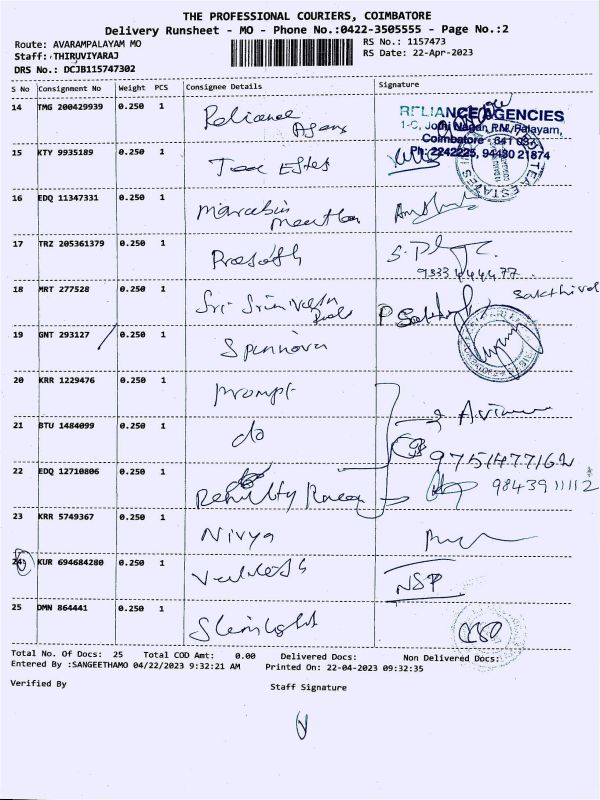 THE PROFESSIONAL COURIERS, COIMBATORE
Delivery Runsheet - MO - Phone No.:0422-3505555 - Page No.:2
Route: AVARAMPALAYAM MO
RS No.: 1157473
Staff: THIRUVIYARAJ
RS Date: 22-Apr-2023
DRS No.: DCJB115747302
S No Consignment No Weight PCS Consignee Details Signature
14 TMG 200429939 0.250 1 Reliance
RELIANCE AGENCIES
1-C, Jothi Nagar, P.N. Palayam,
Coimbatore - 641 037
Ph: 2242225, 94430 21874
15 KTY 9935189 0.250 1
TEA ESTATES
16 EDQ 11347331 0.250 1
17 TRZ 205361379 0.250 1 Prasath
18 MRT 277528 0.250 1 Sri Srinivasa P Sakthivel Sakthivel
19 GNT 293127 0.250 1 Spinnova
20 KRR 1229476 0.250 1 Prompt
21 BTU 1484099 0.250 1 do
9751477162
22 EDQ 12710806 0.250 1 9843911112
23 KRR 5749367 0.250 1 Nivya
24 KUR 694684280 0.250 1 NSP
25 DMN 864441 0.250 1
Total No. Of Docs: 25 Total COD Amt: 0.00 Delivered Docs: Non Delivered Docs:
Entered By :SANGEETHAMO 04/22/2023 9:32:21 AM Printed On: 22-04-2023 09:32:35
Verified By Staff Signature